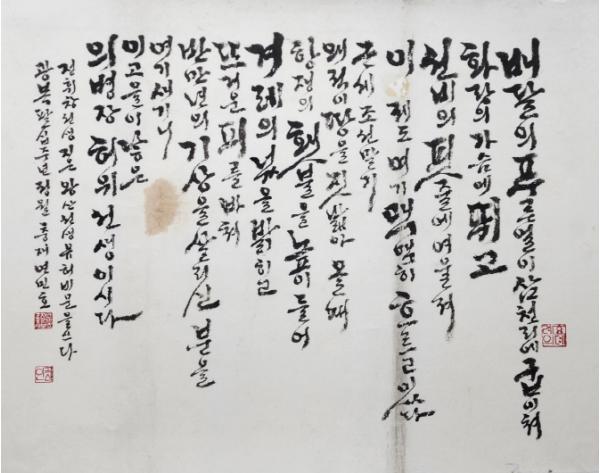 배달의 푸른얼이 삼천리에 굽이쳐
화랑의 가슴에 뛰고
선비의 핏줄에 여울쳐
이제도 여기 맥맥히 흐르고 있다
근세 조선 말기
왜적이 땅을 짓밟아 올 때
항쟁의 횃불을 높이 들어
겨레의 넋을 밝히고
뜨거운 피를 바쳐
반만년의 기상을 살리신 분을
여기 새기니
이 고을이 낳은
의병장 허위 선생이시다
선생 지은 왕산선생 유허비문을 쓰다
광복팔십주년 정월 민호